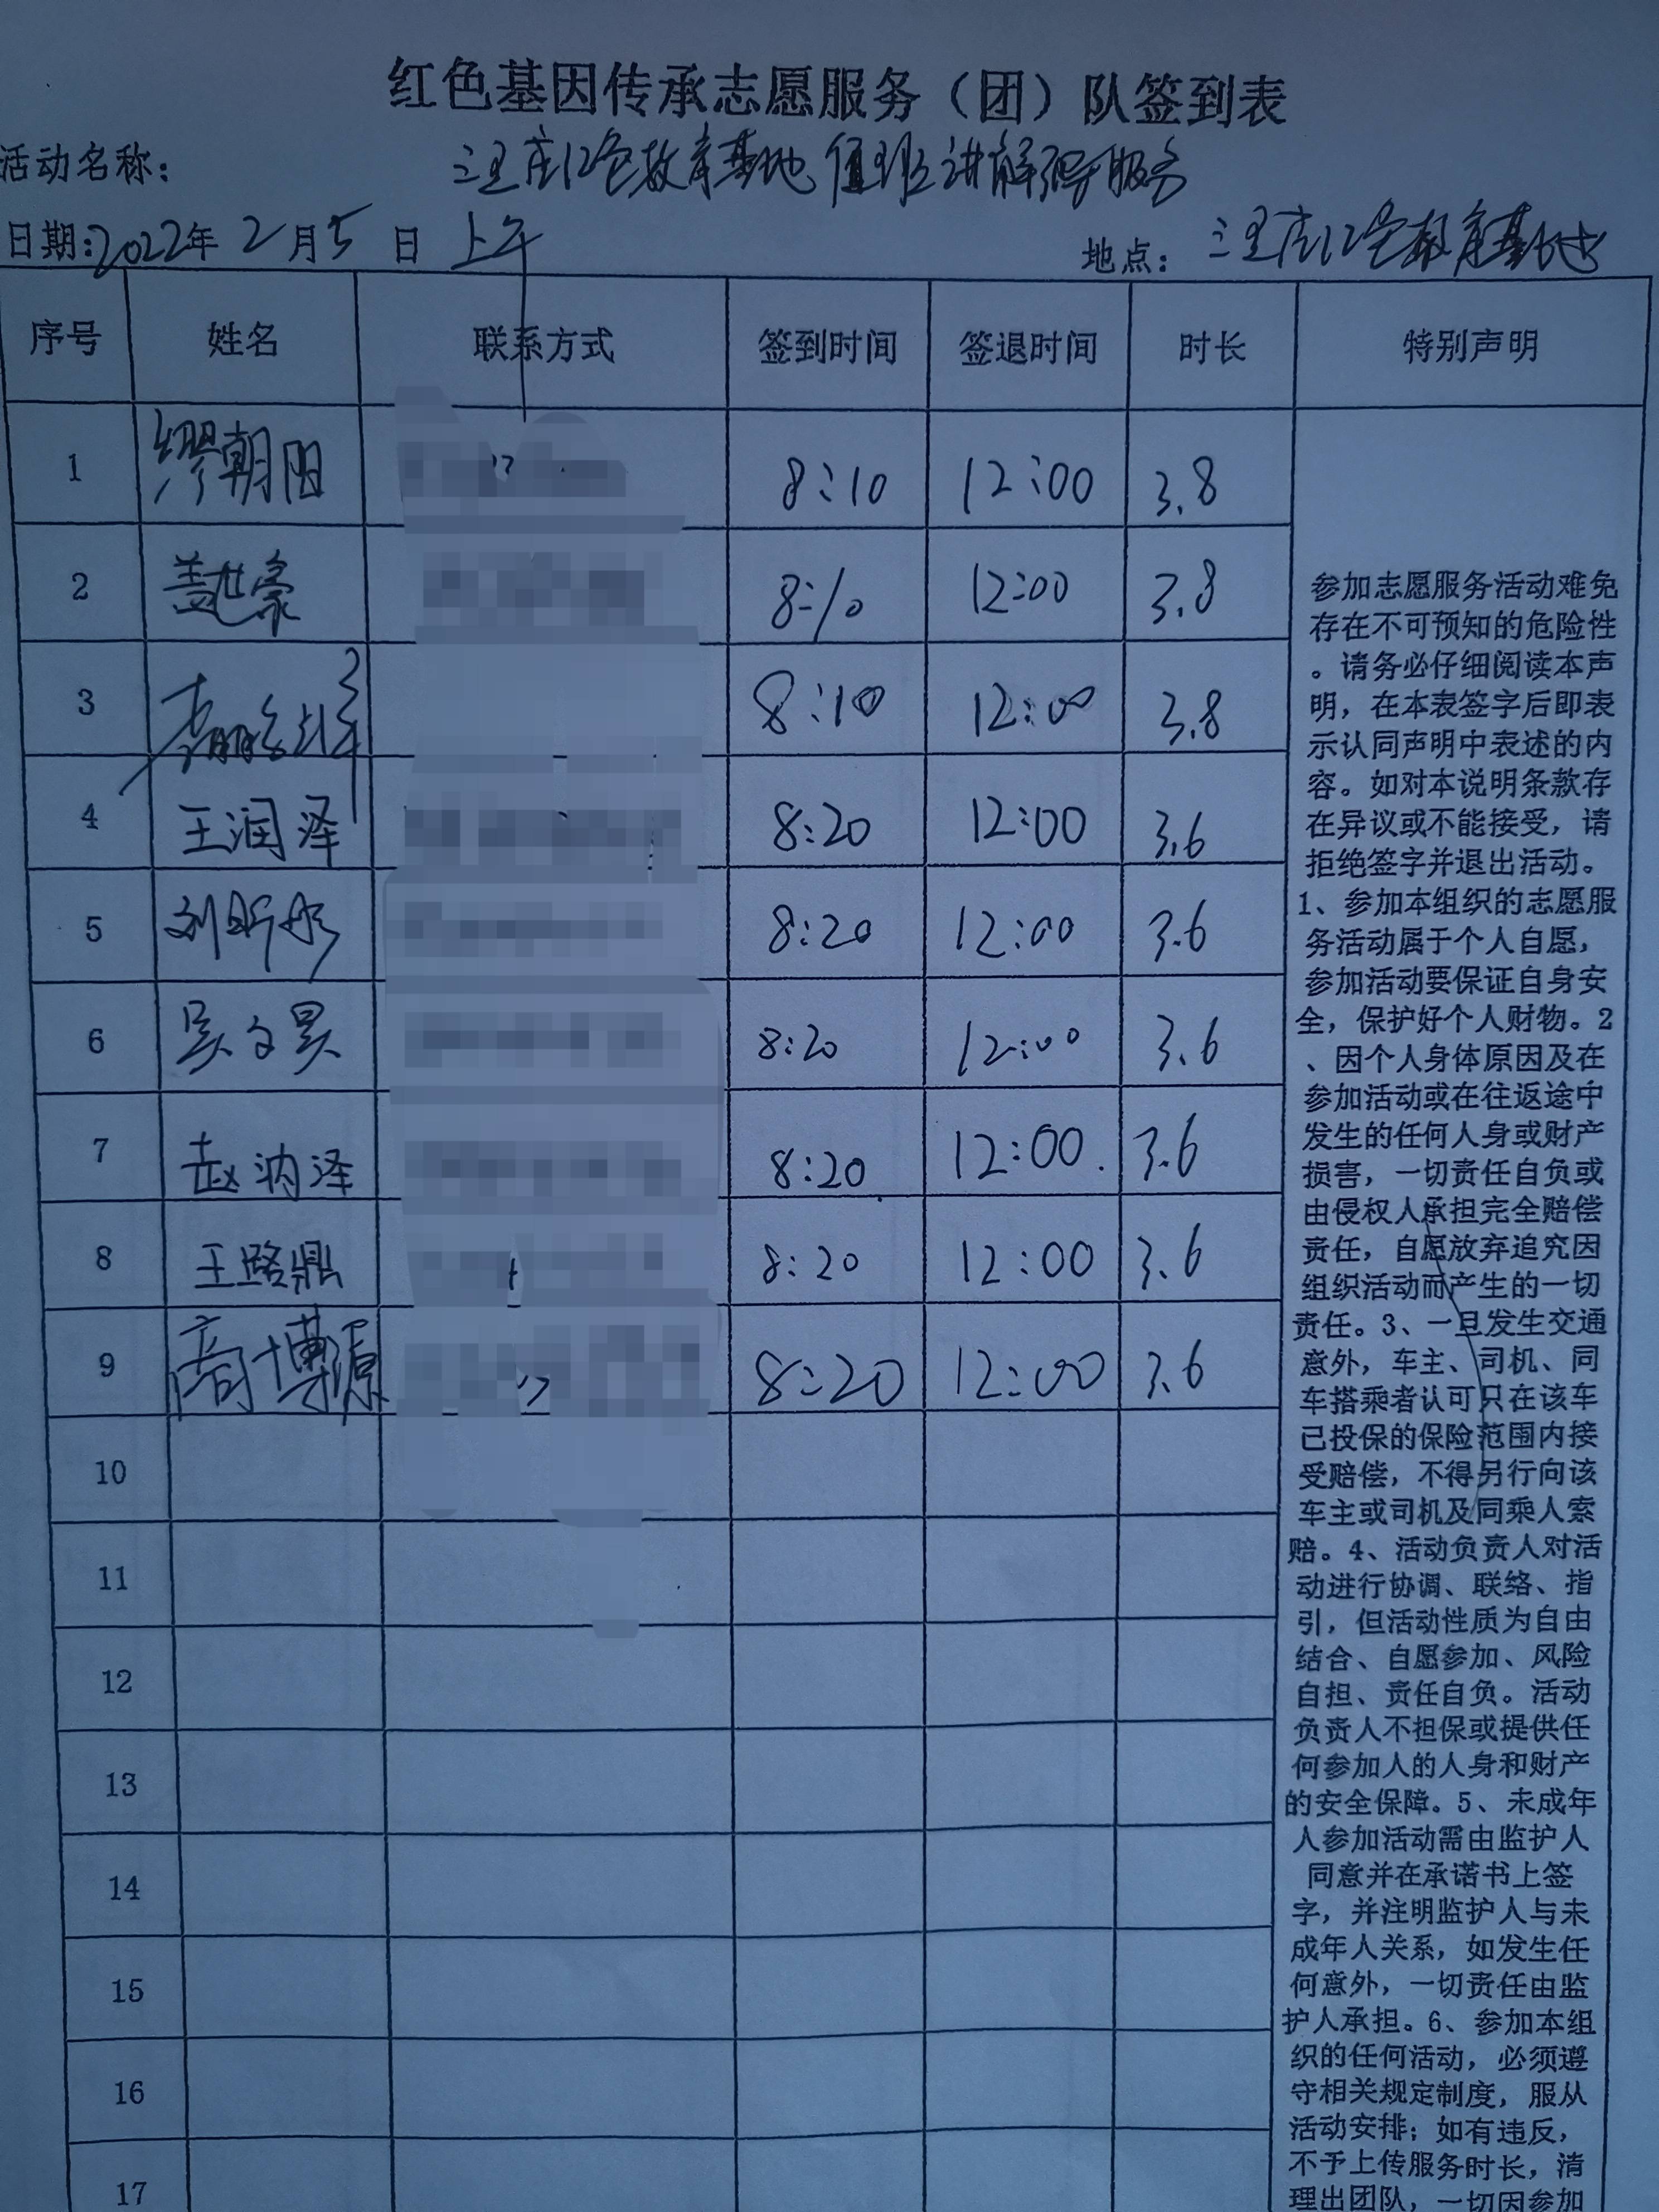 红色基因传承志愿服务（团）队签到表
活动名称： 三里庄红色教育基地值班讲解服务
日期:2022年2月5日上午 地点： 三里庄红色教育基地
序号 姓名 联系方式 签到时间 签退时间 时长 特别声明
1 缪朝阳 8:10 12:00 3.8
2 盖世豪 8:10 12:00 3.8
3 8:10 12:00 3.8
4 王润泽 8:20 12:00 3.6
5 刘昕彤 8:20 12:00 3.6
6 吴文昊 8:20 12:00 3.6
7 赵润泽 8:20 12:00 3.6
8 王路鼎 8:20 12:00 3.6
9 商博源 8:20 12:00 3.6
10
11
12
13
14
15
16
17
参加志愿服务活动难免
存在不可预知的危险性
。请务必仔细阅读本声
明，在本表签字后即表
示认同声明中表述的内
容。如对本说明条款存
在异议或不能接受，请
拒绝签字并退出活动。
1、参加本组织的志愿服
务活动属于个人自愿，
参加活动要保证自身安
全，保护好个人财物。2
、因个人身体原因及在
参加活动或在往返途中
发生的任何人身或财产
损害，一切责任自负或
由侵权人承担完全赔偿
责任，自愿放弃追究因
组织活动而产生的一切
责任。3、一旦发生交通
意外，车主、司机、同
车搭乘者认可只在该车
已投保的保险范围内接
受赔偿，不得另行向该
车主或司机及同乘人索
赔。4、活动负责人对活
动进行协调、联络、指
引，但活动性质为自由
结合、自愿参加、风险
自担、责任自负。活动
负责人不担保或提供任
何参加人的人身和财产
的安全保障。5、未成年
人参加活动需由监护人
同意并在承诺书上签
字，并注明监护人与未
成年人关系，如发生任
何意外，一切责任由监
护人承担。6、参加本组
织的任何活动，必须遵
守相关规定制度，服从
活动安排；如有违反，
不予上传服务时长，清
理出团队，一切因参加